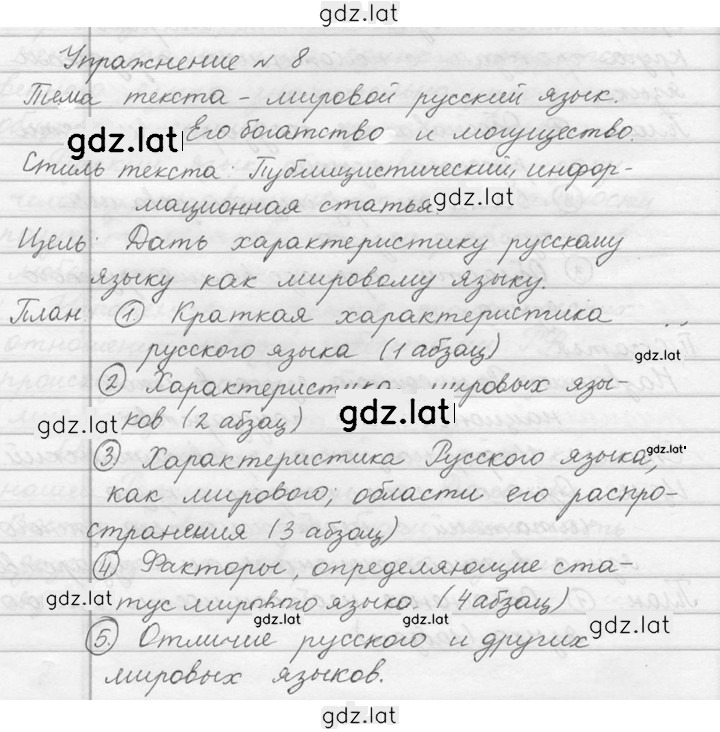 gdz.lat
Упражнение № 8
Тема текста - мировой русский язык.
gdz.lat Его богатство и могущество.
Стиль текста: Публицистический, инфор-
мационная статья gdz.lat
Цель: Дать характеристику русскому
языку как мировому языку.
План ① Краткая характеристика
русского языка (1 абзац) gdz.lat
② Характеристика мировых язы-
gdz.lat ков (2 абзац) gdz.lat
③ Характеристика Русского языка, gdz.lat
как мирового, области его распро-
странения (3 абзац)
④ Факторы, определяющие ста-
gdz.lat тус мирового языка. (4 абзац)
gdz.lat gdz.lat gdz.lat
⑤. Отличие русского и других
мировых языков.
gdz.lat